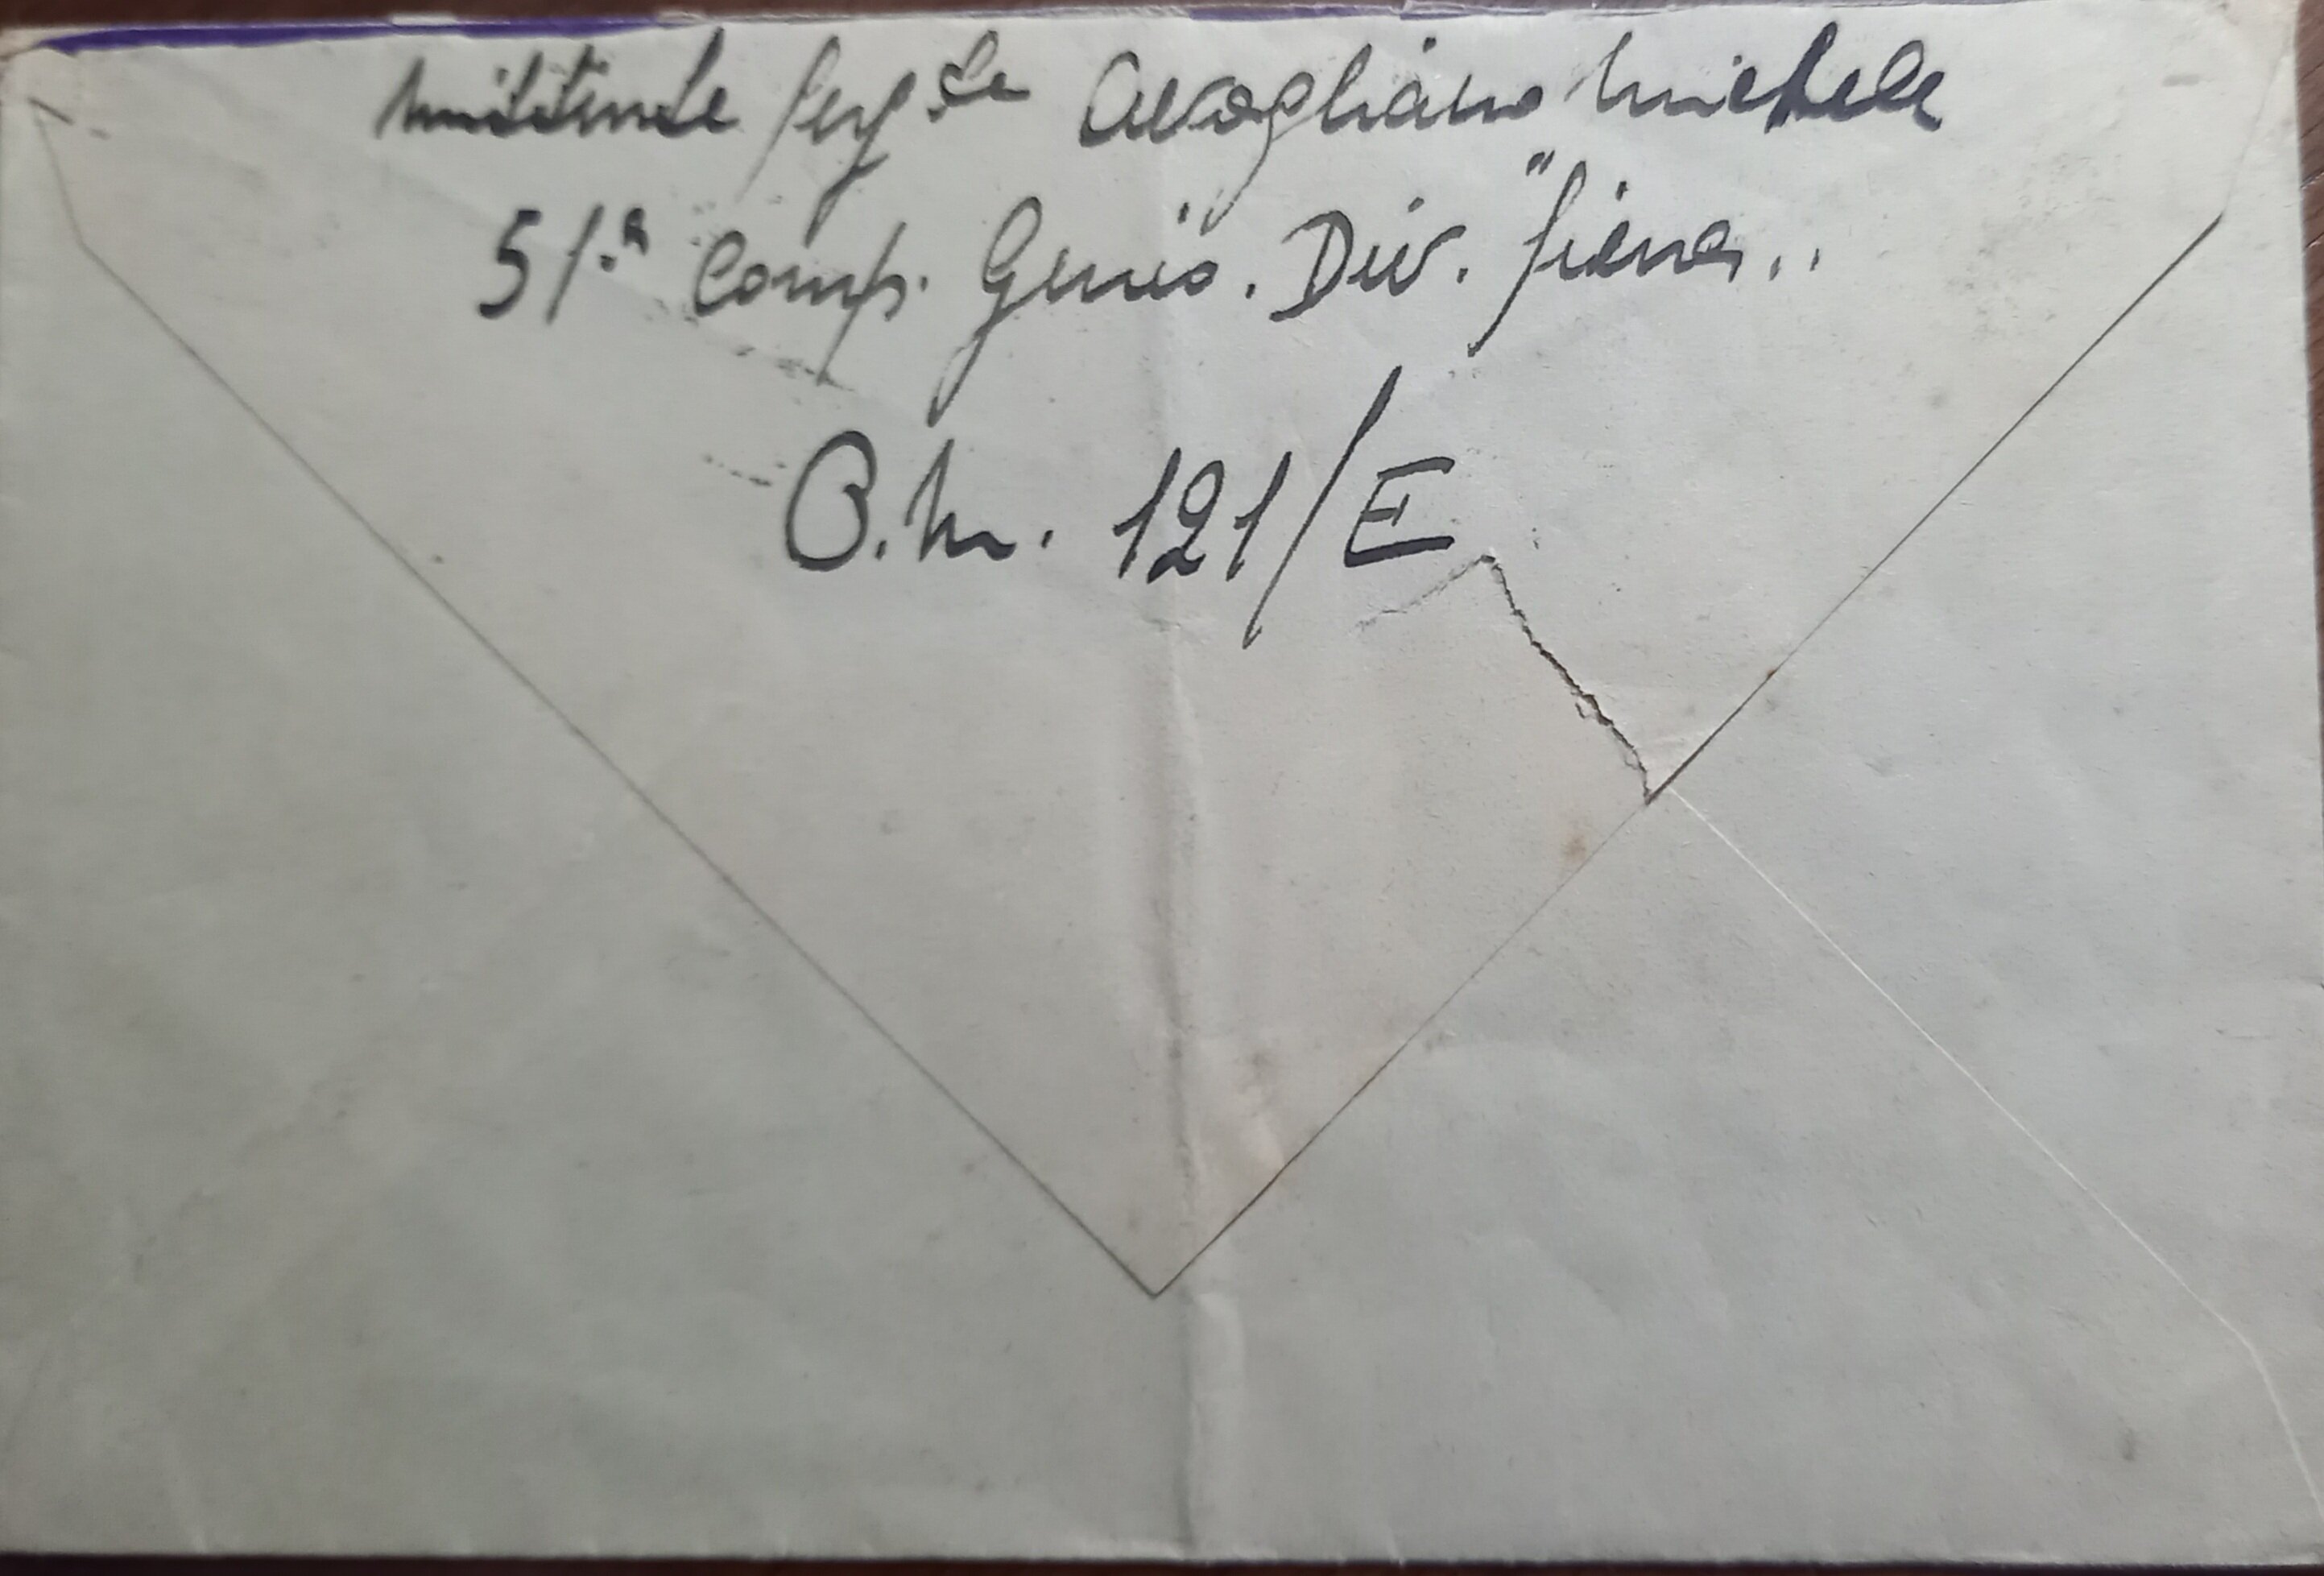 Mittente Serg.te Avagliano Michele
51ª Comp. Genio. Div. "Siena"
P.M. 121/E